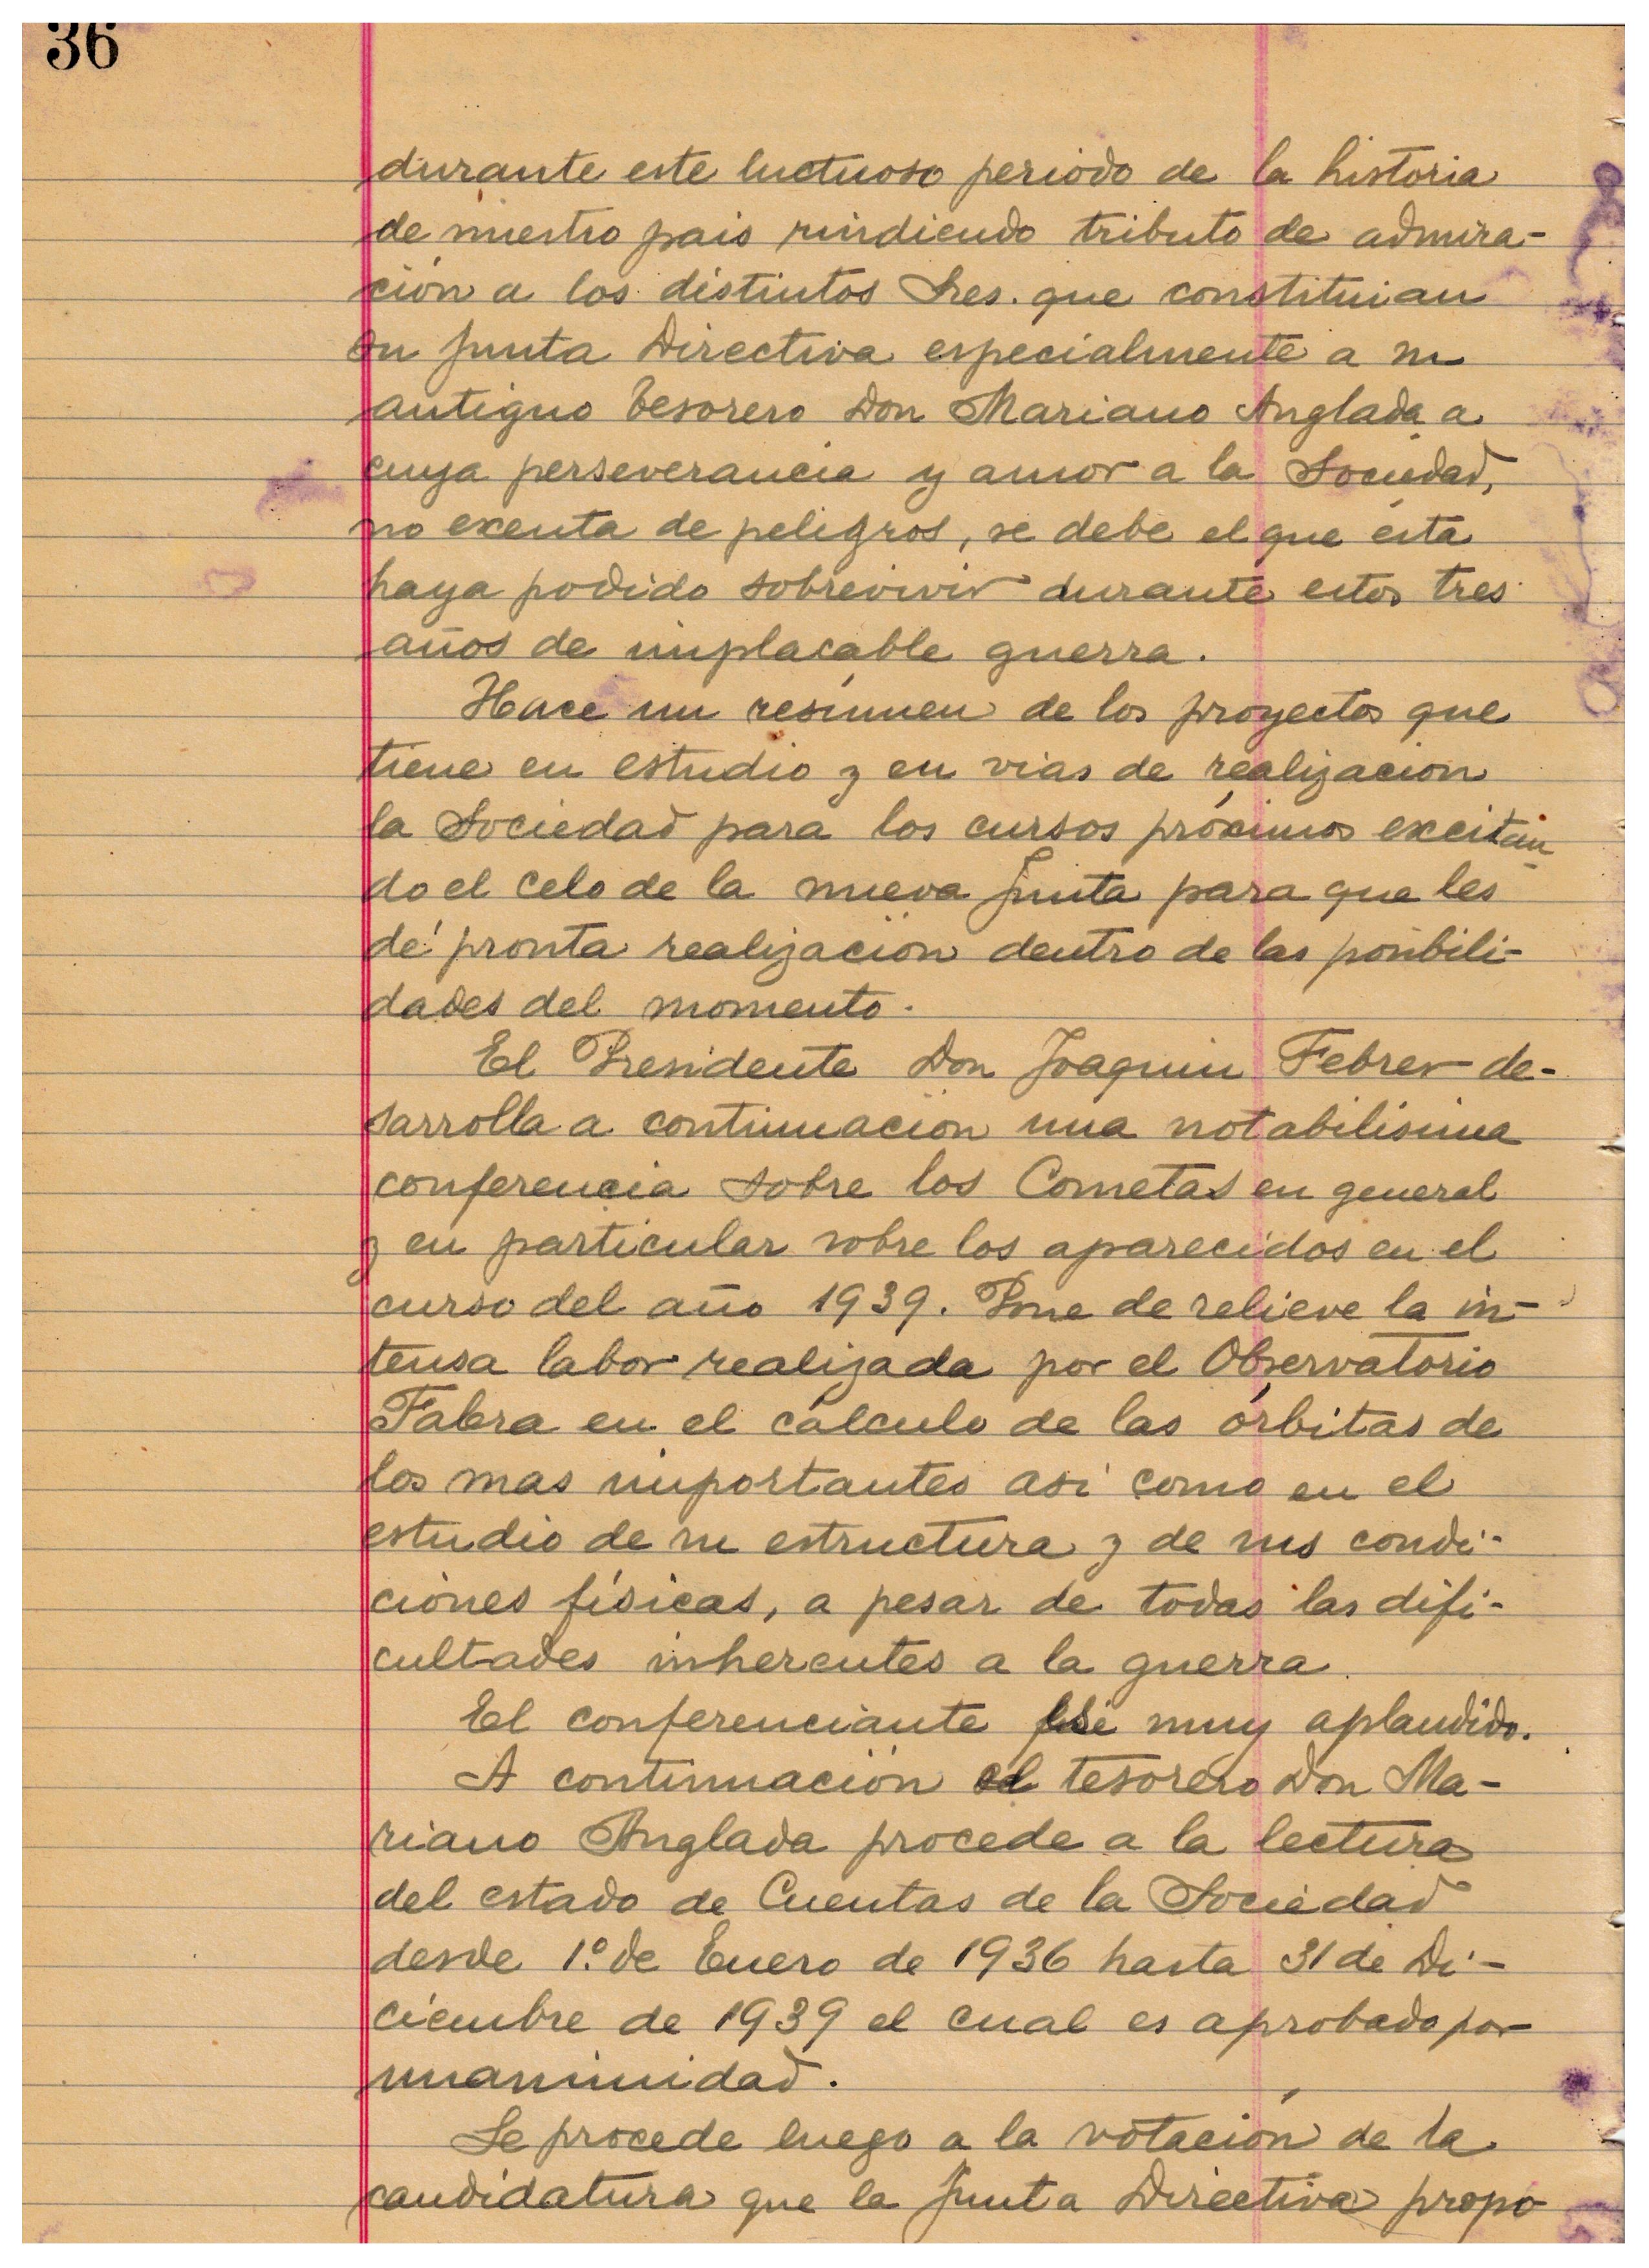 36
durante este luctuoso periodo de la historia
de nuestro pais rindiendo tributo de admira-
ción a los distintos Sres. que constituian
su Junta Directiva especialmente a su
antiguo tesorero Don Mariano Anglada a
cuya perseverancia y amor a la Sociedad,
no exenta de peligros, se debe el que ésta
haya podido sobrevivir durante estos tres
años de implacable guerra.
Hace un resúmen de los proyectos que
tiene en estudio y en vias de realizacion
la Sociedad para los cursos próximos excitan-
do el celo de la nueva Junta para que les
dé pronta realización dentro de las posibili-
dades del momento.
El Presidente Don Joaquin Febrer de-
sarrolla a continuación una notabilisima
conferencia sobre los Cometas en general
y en particular sobre los aparecidos en el
curso del año 1939. Pone de relieve la in-
tensa labor realizada por el Observatorio
Fabra en el cálculo de las órbitas de
los mas importantes asi como en el
estudio de su estructura y de sus condi-
ciones físicas, a pesar de todas las difi-
cultades inherentes a la guerra.
El conferenciante fué muy aplaudido.
A continuación el tesorero Don Ma-
riano Anglada procede a la lectura
del estado de Cuentas de la Sociedad
desde 1º de Enero de 1936 hasta 31 de Di-
ciembre de 1939 el cual es aprobado por
unanimidad.
Se procede luego a la votación de la
candidatura que la Junta Directiva propo